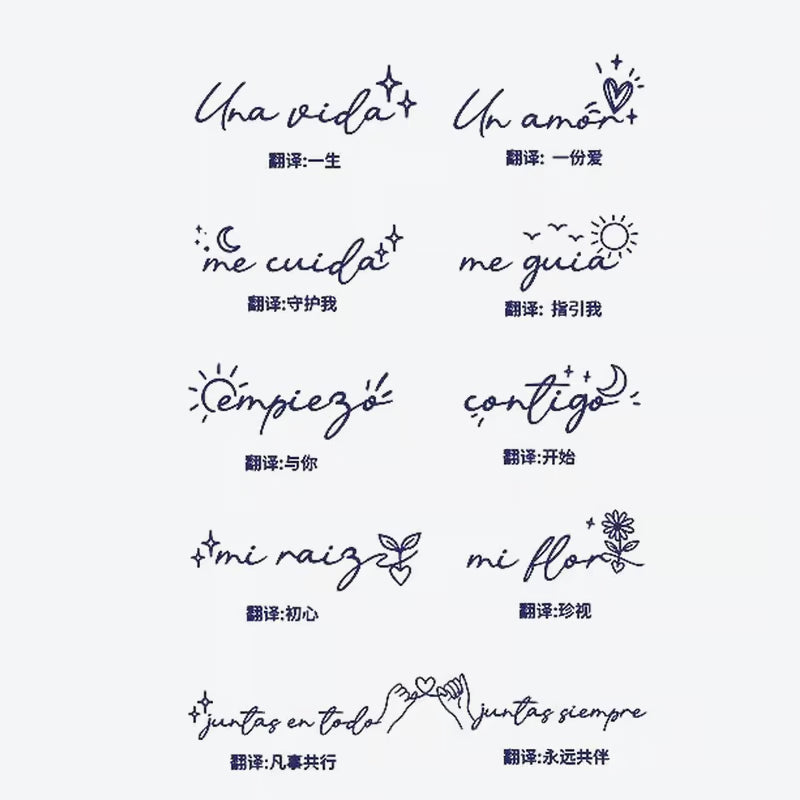 Una vida
Un amor
翻译:一生
翻译: 一份爱
me cuida
me guia
翻译:守护我
翻译: 指引我
empiezo
contigo
翻译:与你
翻译:开始
mi raiz
mi flor
翻译:初心
翻译:珍视
juntas en todo
juntas siempre
翻译:凡事共行
翻译:永远共伴